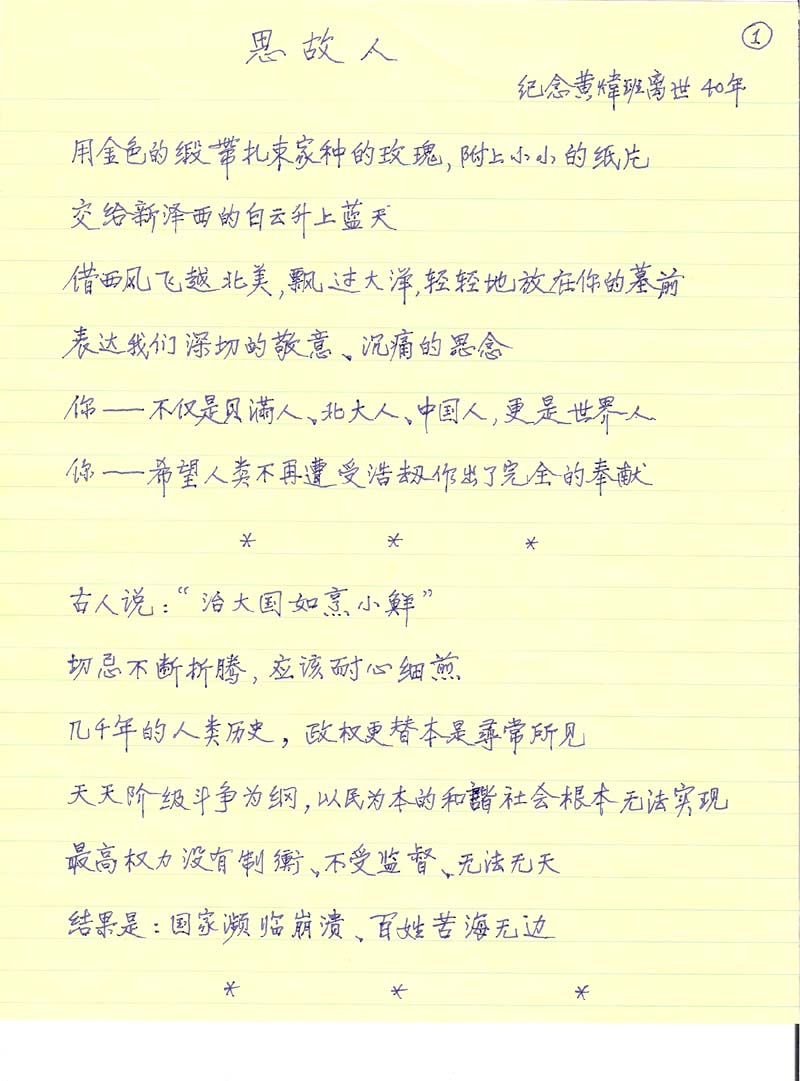 ①
思故人
纪念黄煒班离世40年
用金色的缎带扎束家种的玫瑰,附上小小的纸片
交给新泽西的白云升上蓝天
借西风飞越北美,飘过大洋,轻轻地放在你的墓前
表达我们深切的敬意、沉痛的思念
你——不仅是贝满人、北大人、中国人,更是世界人
你——希望人类不再遭受浩劫作出了完全的奉献
* * *
古人说:“治大国如烹小鲜”
切忌不断折腾,应该耐心细煎
几千年的人类历史,政权更替本是寻常所见
天天阶级斗争为纲,以民为本的和諧社会根本无法实现
最高权力没有制衡、不受监督、无法无天
结果是:国家濒临崩溃、百姓苦海无边
* * *